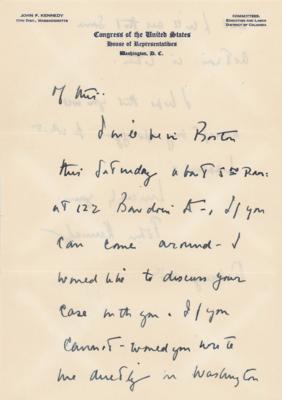 JOHN F. KENNEDY
11TH DIST., MASSACHUSETTS
COMMITTEES:
EDUCATION AND LABOR
DISTRICT OF COLUMBIA
Congress of the United States
House of Representatives
Washington, D. C.
I will be in Boston
this Saturday about 5
at 122 Bowdoin St -, If you
can come around - I
would like to discuss your
case with you. If you
cannot - would you write
me directly in Washington